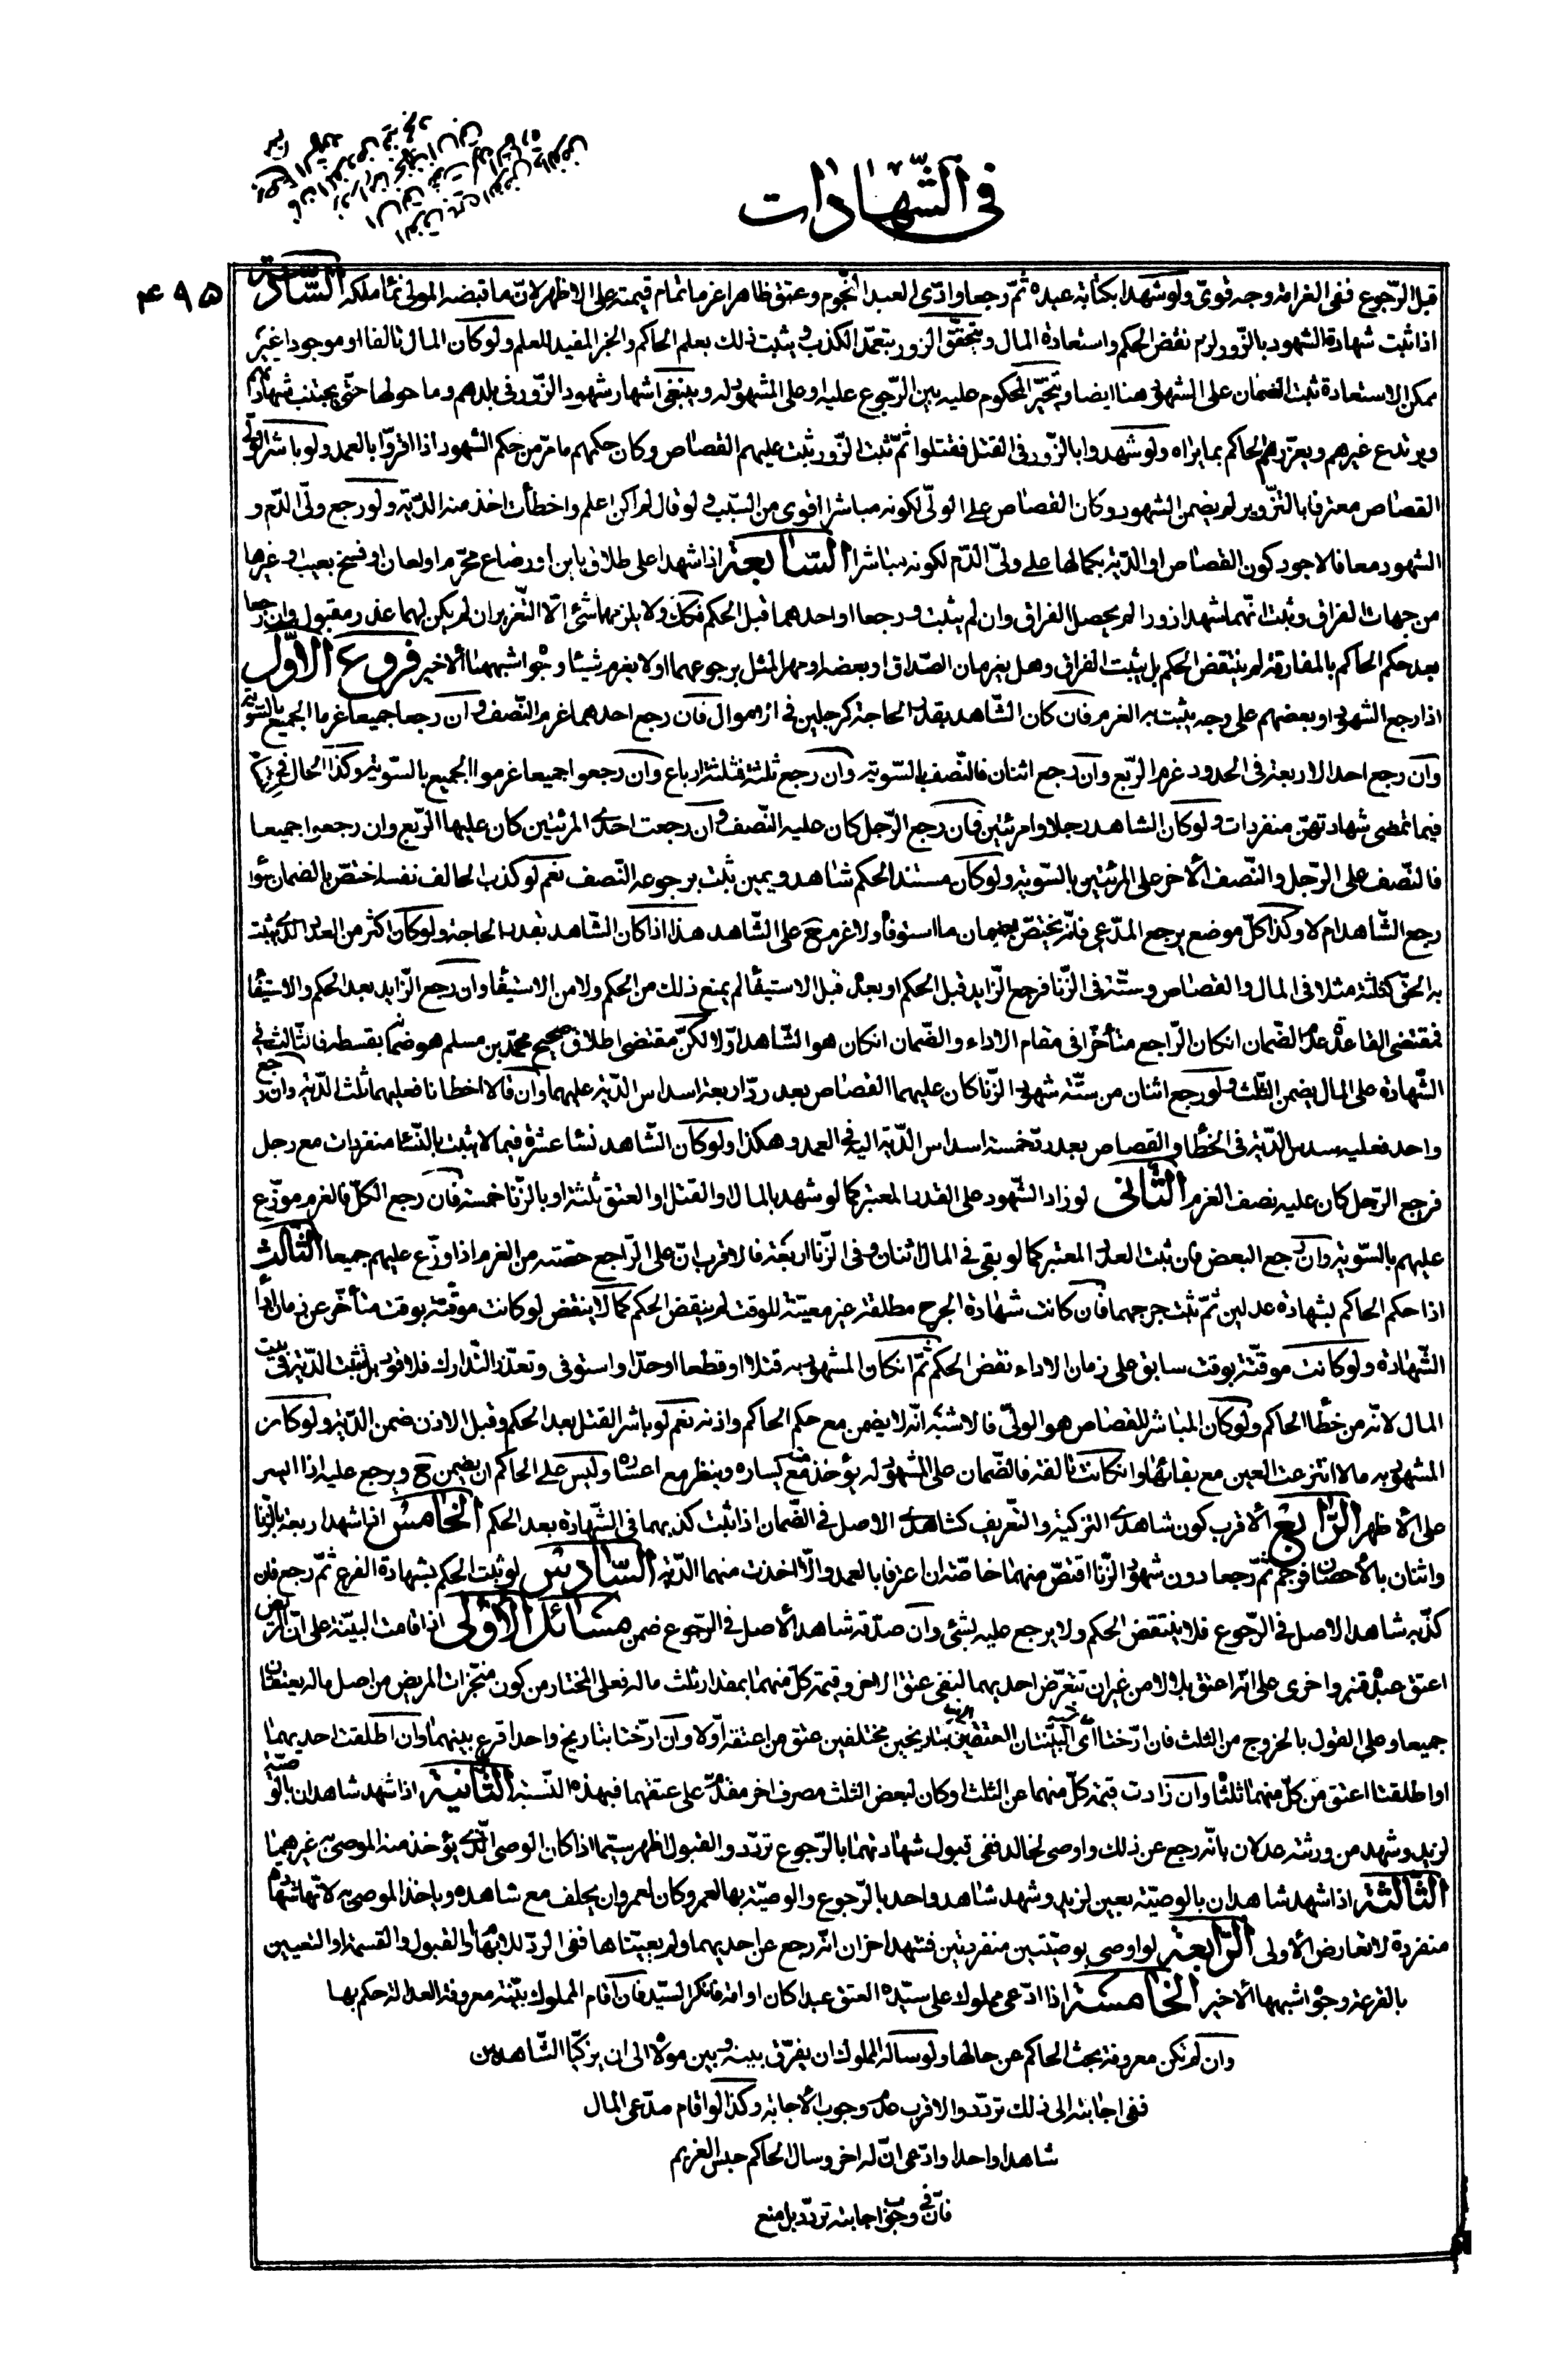 في الشّهادات
۴۹۵
قبل الرّجوع ففى الغرامة وجه قوىّ ولو شهدا بكتابة عبده ثمّ رجعا وادّى العبد النّجوم وعتق ظاهرا غرما تمام قيمته على الاظهر لانّ ما قبضه المولى نماء ملكه السّادسة
اذا ثبت شهادة الشهود بالزّور لزم نقض الحكم واستعادة المال ويتحقّق الزور بتعمّد الكذب ويثبت ذلك بعلم الحاكم والخبر المفيد للعلم ولو كان المال تالفا او موجودا غير
ممكن الاستعادة ثبت الضمان على الشهود هنا ايضا ويتخيّر المحكوم عليه بين الرّجوع عليه وعلى المشهود له وينبغى اشهار شهود الزّور فى بلدهم وما حولها حتّى يجتنب شهادتهم
ويرتدع غيرهم ويعزّرهم الحاكم بما يراه ولو شهدوا بالزّور فى القتل فقتلوا ثمّ ثبت الزّور ثبت عليهم القصاص وكان حكمهم ما مرّ من حكم الشهود اذا اقرّوا بالعمد ولو باشر الولىّ
القصاص معترفا بالتزوير لم يضمن الشهود وكان القصاص على الولىّ لكونه مباشرا اقوى من السّبب ولو قال لم اكن اعلم واخطأت اخذ منه الدّية ولو رجع ولىّ الدّم و
الشهود معا فالاجود كون القصاص او الدّية بكمالها على ولىّ الدّم لكونه مباشرا السّابعة اذا شهدا على طلاق باين او رضاع محرّم او لعان او فسخ بعيب وغيرها
من جهات الفراق وثبت انّهما شهدا زورا لم يحصل الفراق وان لم يثبت ورجعا او احدهما قبل الحكم فكك ولا يلزمهما شئ الّا التّعزير ان لم يكن لهما عذر مقبول وان رجعا
بعد حكم الحاكم بالمفارقة لم ينتقض الحكم بل يثبت الفراق وهل يغرمان الصّداق او بعضه او مهر المثل برجوعهما او لا يغرم شيئا وجوه اشبهها الاخير فروع الاوّل
اذا رجع الشهود او بعضهم على وجه يثبت به الغرم فان كان الشّاهد بقدر الحاجة كرجلين فى الاموال فان رجع احدهما غرم النّصف وان رجعا جميعا غرما الجميع بالسّويّة
وان رجع احد الاربعة فى الحدود غرم الرّبع وان رجع اثنان فالنّصف بالسّويّة وان رجع ثلثة فثلثة ارباع وان رجعوا جميعا غرموا الجميع بالسّويّة وكذا الحال فى
فيما تمضى شهادتهنّ منفردات ولو كان الشاهد رجلا وامرئتين فان رجع الرّجل كان عليه النّصف وان رجعت احدى المرئتين كان عليها الرّبع وان رجعوا جميعا
فالنّصف على الرّجل والنّصف الأخر على المرئتين بالسّويّة ولو كان مستند الحكم شاهد ويمين ثبت برجوعه النّصف نعم لو كذب الحالف نفسه اختصّ بالضمان سواء
رجع الشّاهد ام لا وكذا كلّ موضع يرجع المدّعى فانّه يختصّ بضمان ما استوفاه ولا غرم ح على الشّاهد هذا اذا كان الشّاهد بقدر الحاجة ولو كان اكثر من العدد الّذى يثبت
به الحقّ كثلثة مثلا فى المال والقصاص وستّة فى الزّنا فرجع الزّايد قبل الحكم او بعده قبل الاستيفاء لم يمنع ذلك من الحكم ولا من الاستيفاء وان رجع الزّايد بعد الحكم والاستيفاء
فمقتضى القاعدة عدم الضّمان ان كان الرّاجع متأخّرا فى مقام الاداء والضّمان ان كان هو الشّاهد اوّلا لكنّ مقتضى اطلاق صحيح محمّد بن مسلم هو ضمانه بقسطه فالثّالث فى
الشّهادة على المال يضمن الثّلث ولو رجع اثنان من ستّة شهود الزّنا كان عليهما القصاص بعد ردّ اربعة اسداس الدّية عليهما وان قالا اخطانا فعليهما ثلث الدّية وان رجع
واحد فعليه سدس الدّية فى الخطأ والقصاص بعد ردّ خمسة اسداس الدّية اليه فى العمد وهكذا ولو كان الشّاهد نساء عشرة فيما لا يثبت بالنّساء منفردات مع رجل
فرجع الرّجل كان عليه نصف الغرم الثّانى لو زاد الشّهود على القدر المعتبر كما لو شهد بالمال او القتل او العتق ثلثة او بالزّنا خمسة فان رجع الكلّ فالغرم موزّع
عليهم بالسّويّة وان رجع البعض فان ثبت العدد المعتبر كما لو بقى فى المال اثنان وفى الزّنا اربعة فالاقرب انّ على الرّاجع حصّته من الغرم اذا وزّع عليهم جميعا الثّالث
اذا حكم الحاكم بشهادة عدلين ثمّ ثبت جرحهما فان كانت شهادة الجرح مطلقة غير معيّنة للوقت لم ينقض الحكم كما لا ينقض لو كانت موقّتة بوقت متأخّر عن زمان اداء
الشّهادة ولو كانت موقّتة بوقت سابق على زمان الاداء نقض الحكم ثمّ ان كان المشهود به قتلا او قطعا او حدّا واستوفى وتعذّر التّدارك فلا قود بل تثبت الدّية فى بيت
المال لانّه من خطأ الحاكم ولو كان المباشر للقصاص هو الولىّ فالاشبه انّه لا يضمن مع حكم الحاكم واذنه نعم لو باشر القتل بعد الحكم وقبل الاذن ضمن الدّية ولو كان
المشهود به مالا انتزعت العين مع بقائها وان كانت تالفة فالضّمان على المشهود له يؤخذ منه مع يساره وينظر مع اعساره وليس على الحاكم ان يضمن ح ويرجع عليه اذا ايسر
على الأظهر الرّابع الأقرب كون شاهدى التزكية والتّعريف كشاهدى الاصل فى الضّمان اذا ثبت كذبهما فى الشّهادة بعد الحكم الخامس اذا شهد اربعة بالزّنا
واثنان بالأحصان فرجم ثمّ رجعا دون شهود الزّنا اقتصّ منهما خاصّة ان اعترفا بالعمد والّا اخذت منهما الدّية السّادس لو ثبت الحكم بشهادة الفرع ثمّ رجع فان
كذّبه شاهد الاصل فى الرّجوع فلا ينتقض الحكم ولا يرجع عليه بشئ وان صدّقه شاهد الأصل فى الرّجوع ضمن مسائل الأولى اذا قامت البيّنة على انّ المريض
اعتق عبده قنبر واخرى على انّه اعتق بلالا من غير ان تتعرّض احديهما لنفى عتق الاخر وقيمة كلّ منهما بمقدار ثلث ماله فعلى المختار من كون منجّزات المريض من اصل ماله يعتقان
جميعا وعلى القول بالخروج من الثلث فان ارّختا اى البيّنتان العتقين بتاريخين مختلفين عتق من اعتقه اوّلا وان ارّختا بتاريخ واحد اقرع بينهما وان اطلقت احديهما
او اطلقتا اعتق من كلّ منهما ثلثا وان زادت قيمة كلّ منهما عن الثلث او كان لبعض الثلث مصرف اخر مقدّم على عتقهما فبهذه النّسبة الثّانية اذا شهد شاهدان بالوصيّة
لزيد وشهد من ورثته عدلان بانّه رجع عن ذلك واوصى لخالد ففى قبول شهادتهما بالرّجوع تردّد والقبول اظهر سيّما اذا كان الوصى الّذى يؤخذ منه الموصى به غيرهما
الثّالثة اذا شهد شاهدان بالوصيّة بعين لزيد وشهد شاهد واحد بالرّجوع والوصيّة بها لعمرو كان لعمرو ان يحلف مع شاهده وياخذ الموصى به لانّها شهادة
منفردة لا تعارض الأولى الرّابعة لو اوصى بوصيّتين منفردتين فشهد اخران انّه رجع عن احديهما ولم يعيّناها ففى الردّ للابهام والقبول والقسمة او التعيين
بالقرعة وجوه اشبهها الأخير الخامسة اذا ادّعى مملوك على سيّده العتق عبدا كان او امة فانكر السّيّد فان اقام المملوك بيّنة معروفة العدالة حكم بها
وان لم تكن معروفة بحث الحاكم عن حالها ولو سأله المملوك ان يفرّق بينه وبين مولاه الى ان يزكّيا الشّاهدين
ففى اجابته الى ذلك تردّد والاقرب عدم وجوب الأجابة وكذا لو اقام مدّعى المال
شاهدا واحدا وادّعى انّ له اخر وسال الحاكم حبس الغريم
فانّ فى وجوب اجابته تردّد بل منع